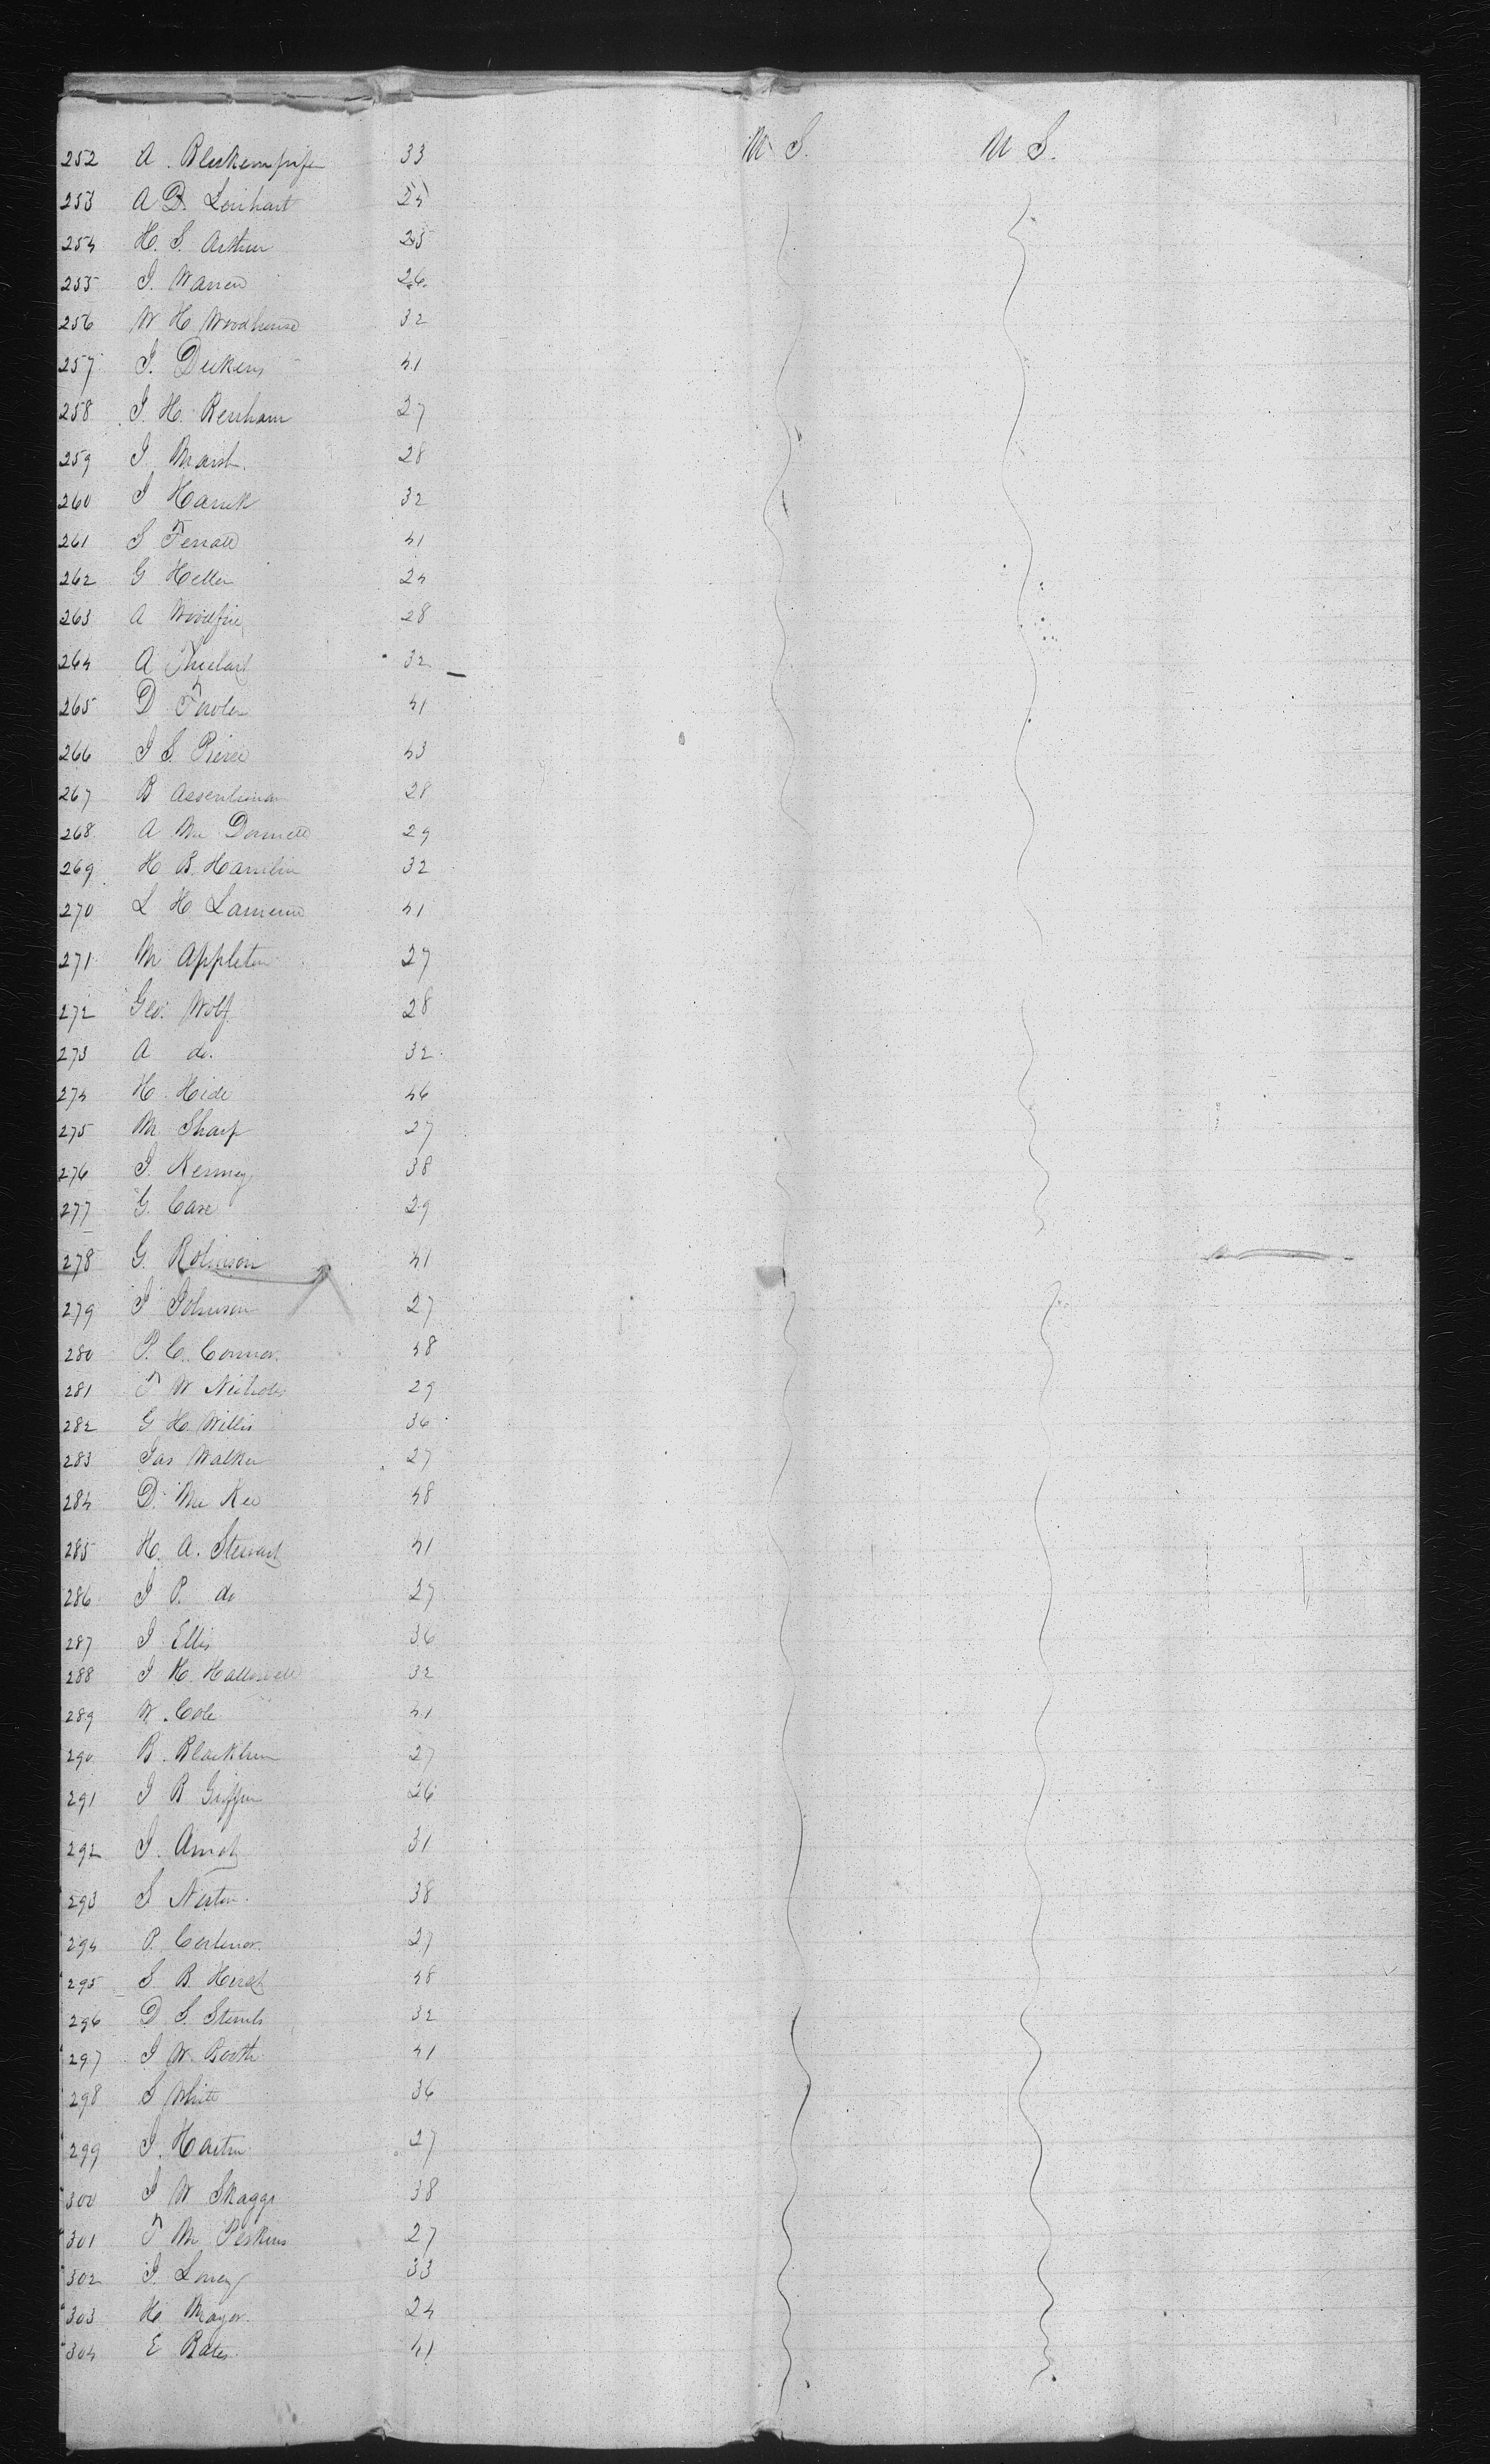 252 A. 33 U S. U S.
253 A D. Lenhart 24
254 H. S. Arthur 25
255 J. Warren 26
256 W H Woodhouse 32
257 J. Deekens 41
258 J. H. Benham 27
259 J Marsh. 28
260 J 32
261 S 41
262 G Heller 24
263 A 28
264 A 32
265 D Fowler 41
266 J S. Pierce 43
267 B 28
268 A Mc Donnell 29
269 H B. Hamlin 32
270 L H 41
271 M Appleton 27
272 Geo. Wolf 28
273 A do. 32
274 H. Heide 46
275 M. Sharp 27
276 J. Kenney 38
277 G. Case 29
278 G. Robinson 41
279 J Johnson 27
280 P. C. Connor. 48
281 F W Nichols 29
282 G H. Willis 36
283 Jas Walker 27
284 D. Mc Kee 48
285 H. A. Stewart 41
286 J P. do 27
287 J Ellis 36
288 J H. Hallowell 32
289 W. Cole 41
290 B. Blackburn 27
291 J B Griffin 26
292 J. 31
293 S Norton. 38
294 P. 27
295 S. B. 48
296 D. S. 32
297 J W. Booth 41
298 S White 36
299 J. 27
300 J W Skaggs 38
301 F M Perkins 27
302 J. 33
303 H Mayor. 24
304 E Bates 41